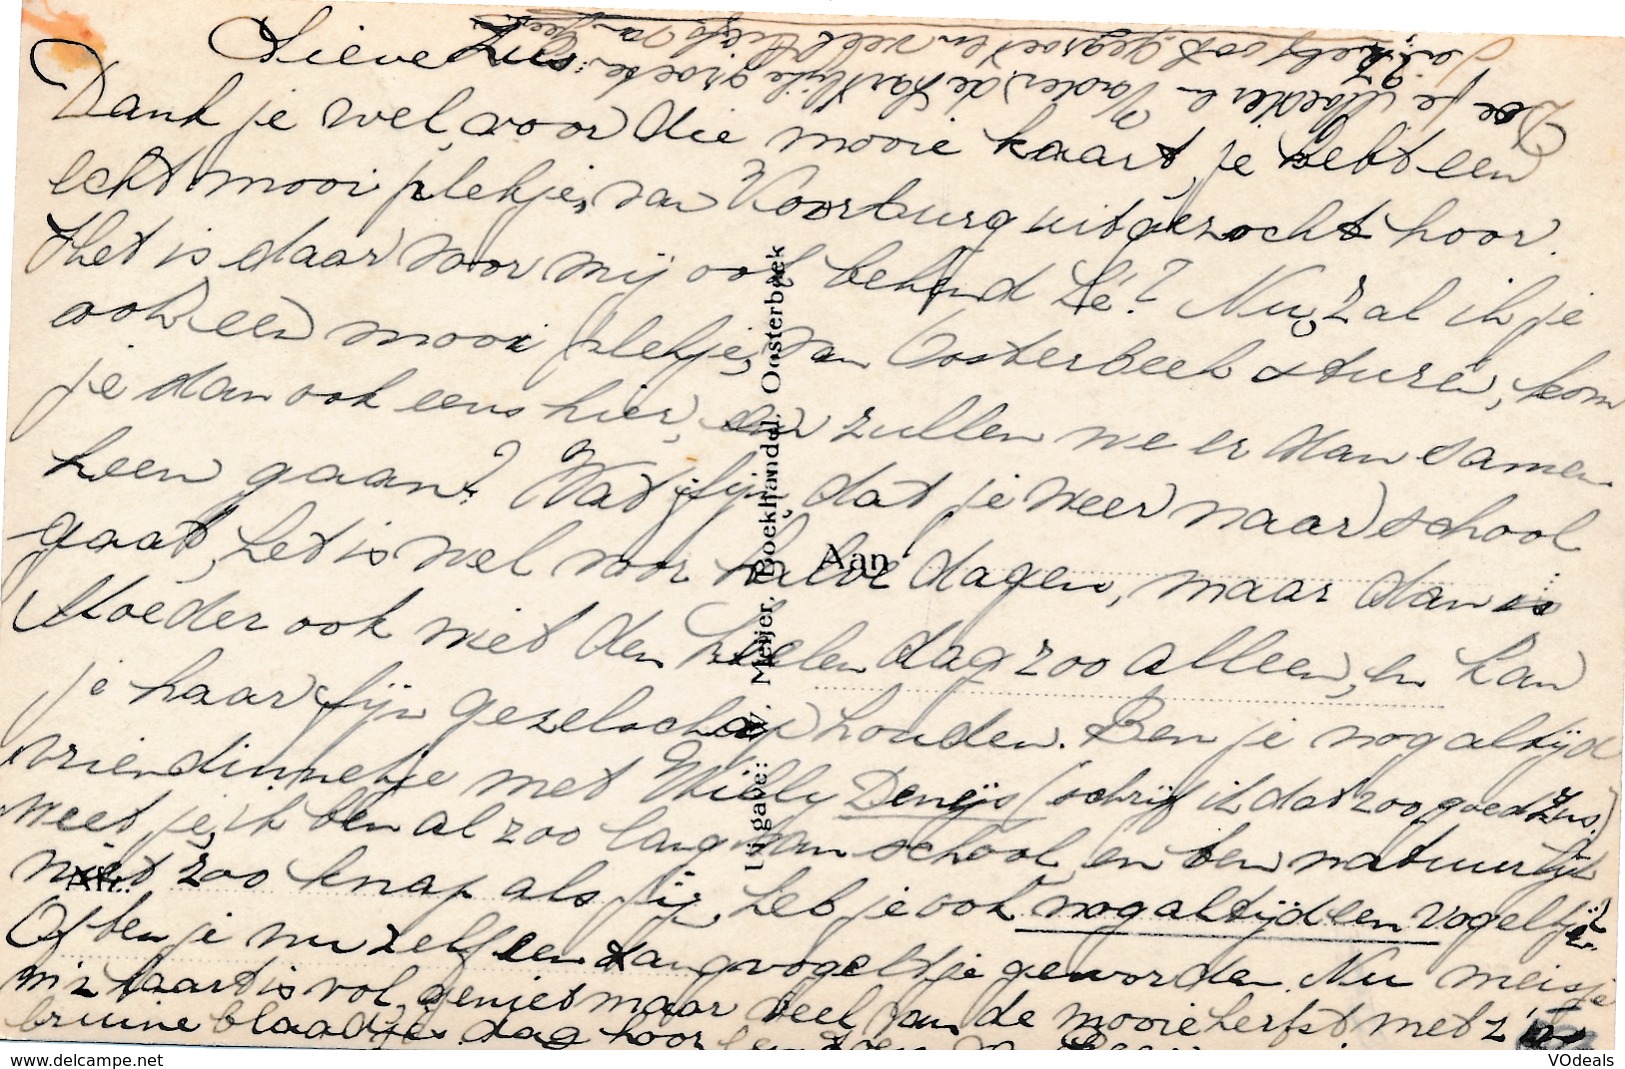 Lieve Zus
Dank je wel, voor die mooie kaart, je hebt een
echt mooi plekje, van Voorburg uitgezocht hoor.
Het is daar voor mij ook bekend hé? Nu, zal ik je
ook een mooi plekje, van Oosterbeek sturen, kom
je dan ook eens hier, en zullen we er dan samen
heen gaan? Wat fijn, dat je weer naar school
gaat, het is wel voor halve dagen, maar dan is
Moeder ook niet den heelen dag zoo alleen, en kan
je haar fijn gezelschap houden. Ben je nog altijd
vriendinnetje met Willy Deneijs (schrijf ik dat zoo goed Zus.)
Weet je, ik ben al zoo lang van school, en ben natuurlijk
niet zoo knap als jij, heb je ook nog altijd een vogeltje
Of ben je nu zelf een zangvogeltje geworden. Nu meisje
m'n kaart is vol, geniet maar veel van de mooie herfst met z'n
bruine blaadjes dag hoor
Doe je Moeder en Vader de hartelijke groeten
zelf ook gegroet en veel liefs van
Uitgave: W. Meijer, Boekhandel, Oosterbeek
Aan